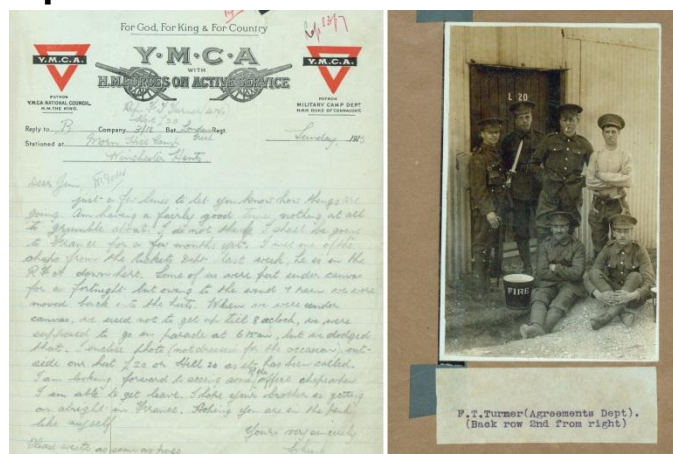 For God, For King & For Country
Y.M.C.A.
Y·M·C·A
WITH
H.M. FORCES ON ACTIVE SERVICE
Y.M.C.A.
PATRON
Y.M.C.A. NATIONAL COUNCIL.
H.M. THE KING.
PATRON
MILITARY CAMP DEPT
H.R.H. DUKE OF CONNAUGHT.
Reply to R Company 3/12 Bat. London Regt.
Sunday 191
Stationed at Morn Hill Camp
Winchester Hants
Dear Gem,
just a few lines to let you know how things are
going. Am having a fairly good time, nothing at all
to grumble about. I do not think I shall be going
to France for a few months yet. I met one of the
chaps from the tickets Dept. last week, he is in the
R.F.A. down here. Some of us were put under canvas
for a fortnight but owing to the wind & rain we were
moved back into the huts. When we were under
canvas, we used not to get up till 8 oclock, we were
supposed to go on parade at 6.15am, but we dodged
that. I enclose photo (not dressed for the occasion), out-
side our hut L20 or Hill 20 as it has been called.
I am looking forward to seeing some of the office chaps when
I am able to get leave. I hope your brother is getting
on alright in France. Hoping you are in the pink
like myself
Yours very sincerely
Please write as soon as poss
L 20
FIRE
F.T.Turner(Agreements Dept).
(Back row 2nd from right)